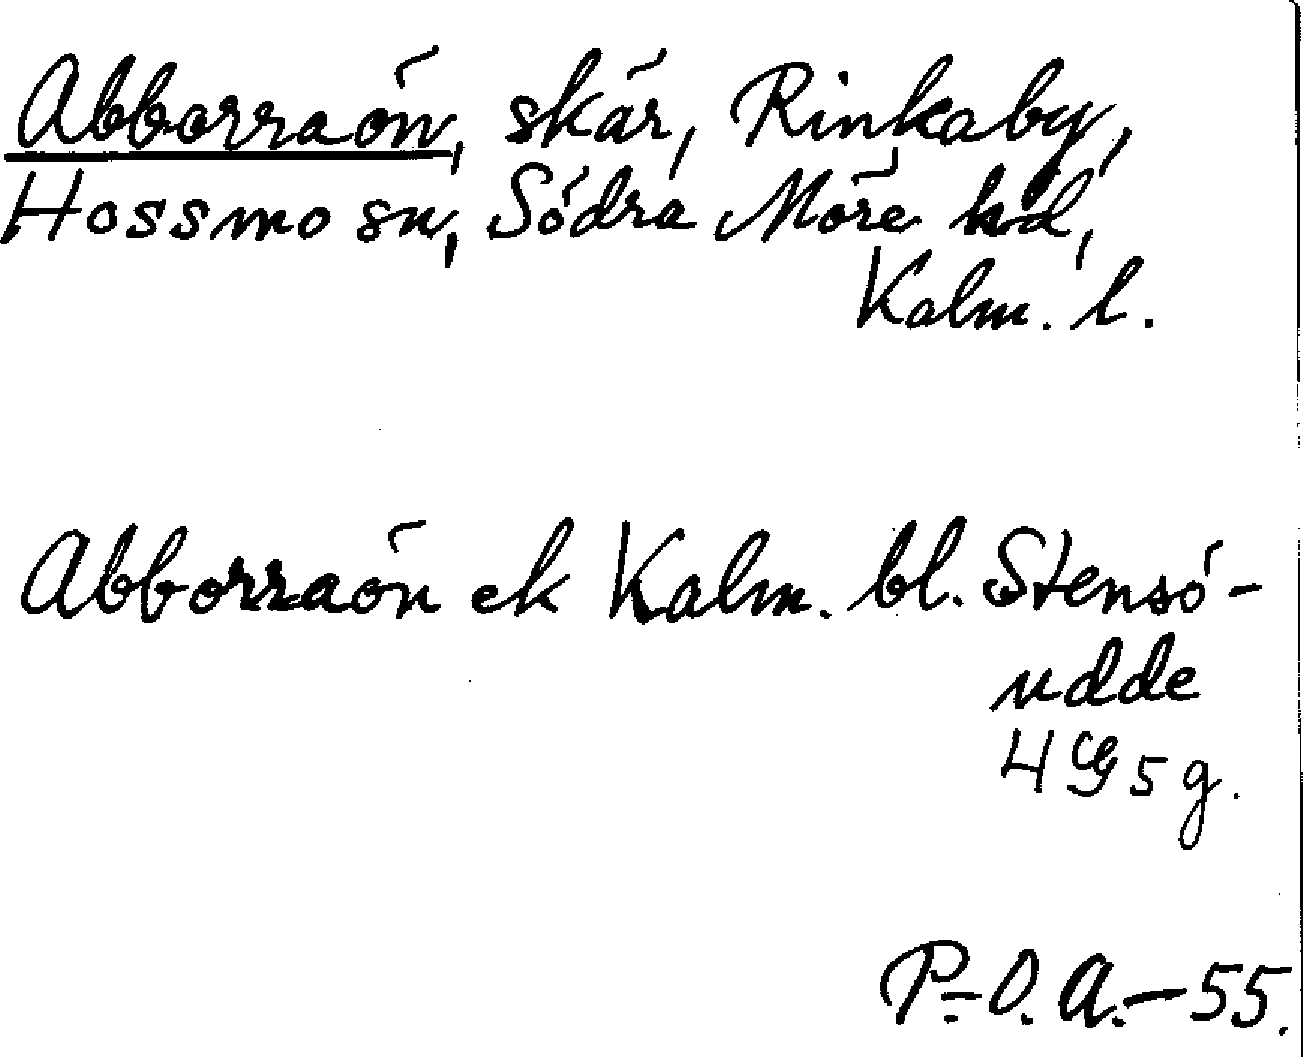 Abborraön, skär, Rinkaby,
Hossmo sn, Södra Möre hd,
Kalm. l.
Abborraön ek Kalm. bl. Stensö-
udde
4 G 5 g.
P.-O. A. - 55.